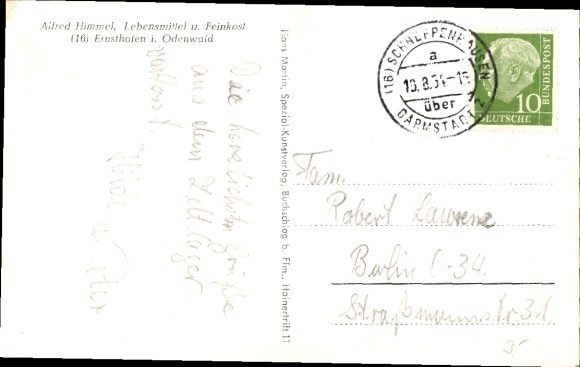 Alfred Himmel, Lebensmittel u. Feinkost
(16) Ernsthofen i. Odenwald
Die herzlichsten Grüße
aus dem Zeltlager
Heide u.
Hans Martin, Spezial-Kunstverlag, Buchschlag b. Ffm., Hainertrift 11
(16) SCHNEPPENHAUSEN
a
über
DARMSTADT 2
10
DEUTSCHE
BUNDESPOST
Fam.
Robert Lawrenz
Berlin O-34.
Straßmannstr. 31.
3.-